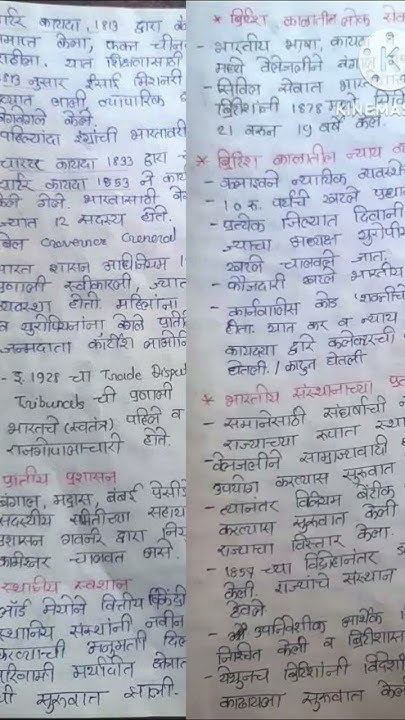 चार्टर कायदा, 1813 द्वारा
समाप्त केला, फक्त चीन
राहीला. यात शिक्षणासाठी
1813 नुसार ईसाई मिशनरी
व्यापारिक
वेगवेगळे केले.
पहिल्यांदा इंग्रजी भारतावर
चार्टर कायदा 1833 द्वारा
चार्टर कायदा 1853 ने
केली गेली. भारतासाठी
ज्यात 12 सदस्य होते.
Governor General
भारत शासन अधिनियम
प्रणाली स्वीकारली, ज्यात
व्यवस्था होती. महिलांना
व युरोपियनांना केले
जन्मदाता
- इ. 1928 चा Trade Disput
Tribunals ची प्रणाली
भारतचे (स्वतंत्र) पहिले व
राजगोपालाचारी होते.
प्रांतीय प्रशासन
बंगाल, मद्रास, बंबई
सदस्यीय समीतीच्या सहाय्य
प्रशासन गवर्नर द्वारा
कमिश्नर चालवत असे.
स्थानीय स्वशासन
लॉर्ड मेयोने वित्तीय
स्थानिय संस्थांनी नवीन
करण्याची अनुमती
परिणामी मर्यादीत
ची सुरुवात झाली.
* ब्रिटिश कालातील लोक सेवा
- भारतीय भाषा, कायदा
मध्ये वेलेजलीने
- सिविल सेवात
ब्रिटिशांनी 1878 मध्ये
21 वरून 19 वर्षे केले.
KINEMAS
* ब्रिटिश कालातील न्याय
- न्यायिक व्यवस्थे
- 10 रु. पर्यंतची खटले
- प्रत्येक जिल्यात दिवानी
ज्याचा अध्यक्ष युरोपीय
खटले चालवले जात.
- फौजदारी खटले भारतीय
- कार्नवालिस कोड
होता. यात कर व न्याय
कायद्या द्वारे कलेक्टरची
घेतली. / काढून घेतली
* भारतीय संस्थानाच्या
- समानेसाठी संघर्षाची
राज्याच्या रुपात
- वेलजलीने साम्राज्यवादी
उपयोग करण्यास सुरुवात
- त्यानंतर विल्यम बेंटीक
करण्यास सुरुवात केली
राज्याचा विस्तार केला.
- 1857 च्या विद्रोहानंतर
केली राज्यांचे संस्थान
ठेवले
- उपनिवेशीक आर्थिक
निश्चित केली व ब्रिटीशास
- येथूनच ब्रिटिशांनी विदेशी
काढायला सुरुवात केली